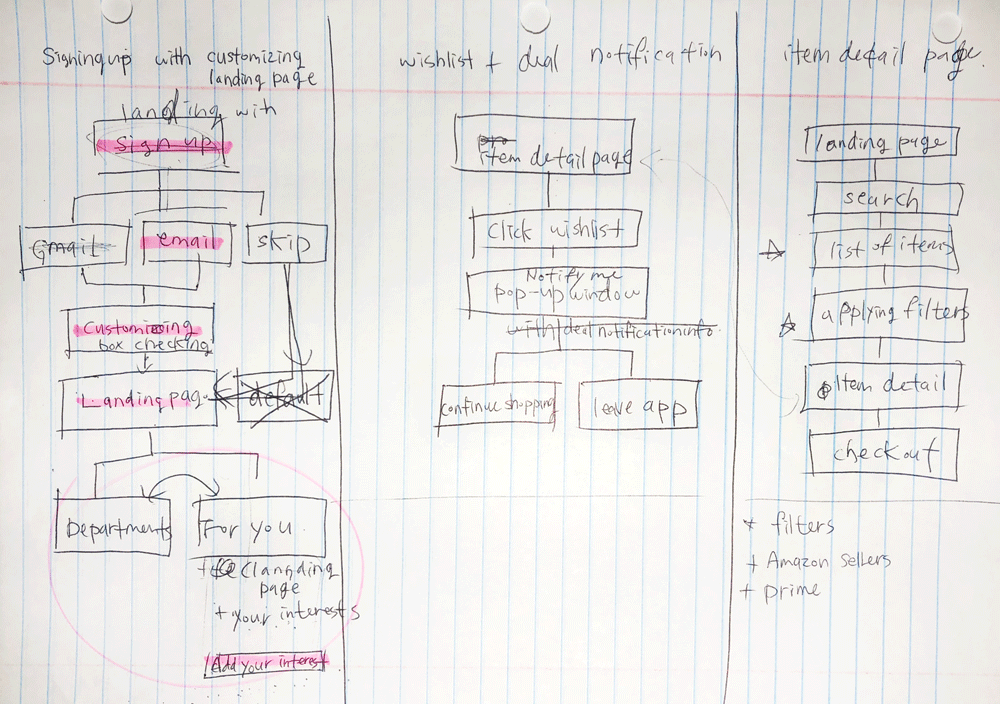 Signing up with customizing
landing page
landing with
sign up
Gmail
email
skip
Customizing
box checking
Landing page
default
Departments
For you
landding
page
+ your interests
Add your interest
wishlist + deal notification
item detail page
Click wishlist
Notify me
pop-up window
with deal notification info
continue shopping
leave app
item detail page.
landing page
search
list of items
applying filters
Item detail
checkout
* filters
+ Amazon sellers
+ prime